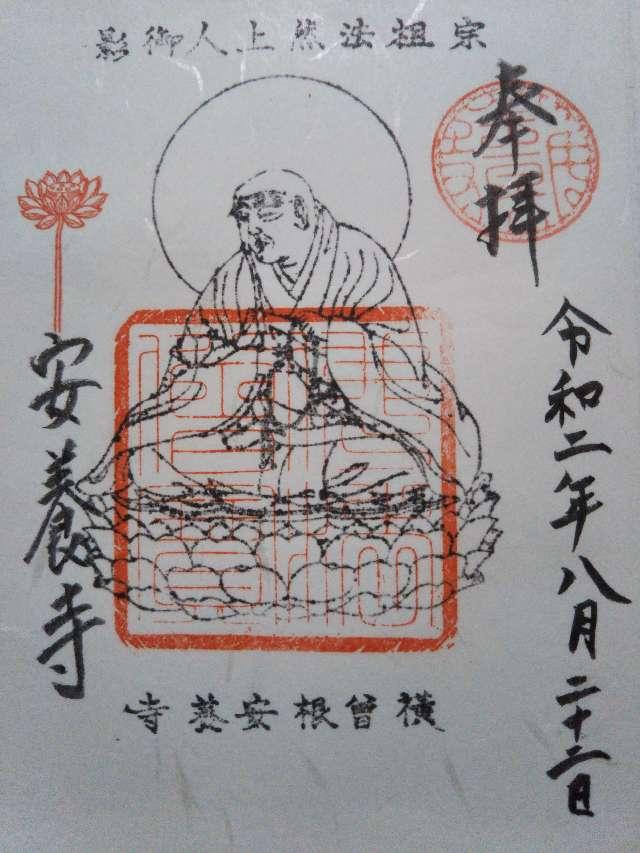 宗祖法然上人御影
奉拝
令和二年八月二十二日
安養寺
横曾根安養寺